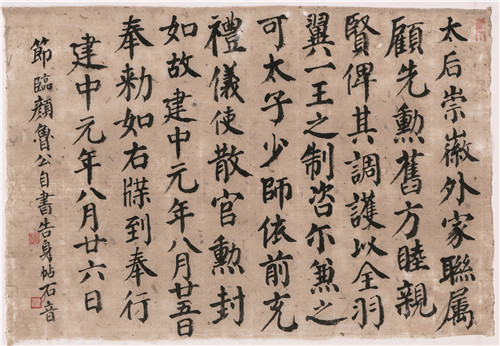 太后崇徽外家聯属
顧先勳舊方睦親
賢俾其調護以全羽
翼一王之制咨尔兼之
可太子少師依前充
禮儀使散官勳封
如故建中元年八月廿五日
奉勅如右牒到奉行
建中元年八月廿六日
節臨顏魯公自書告身帖石音